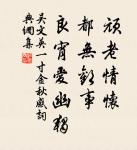 頑老情懷
都無歡事
良宵愛幽獨
吳文英一寸金秋感詞